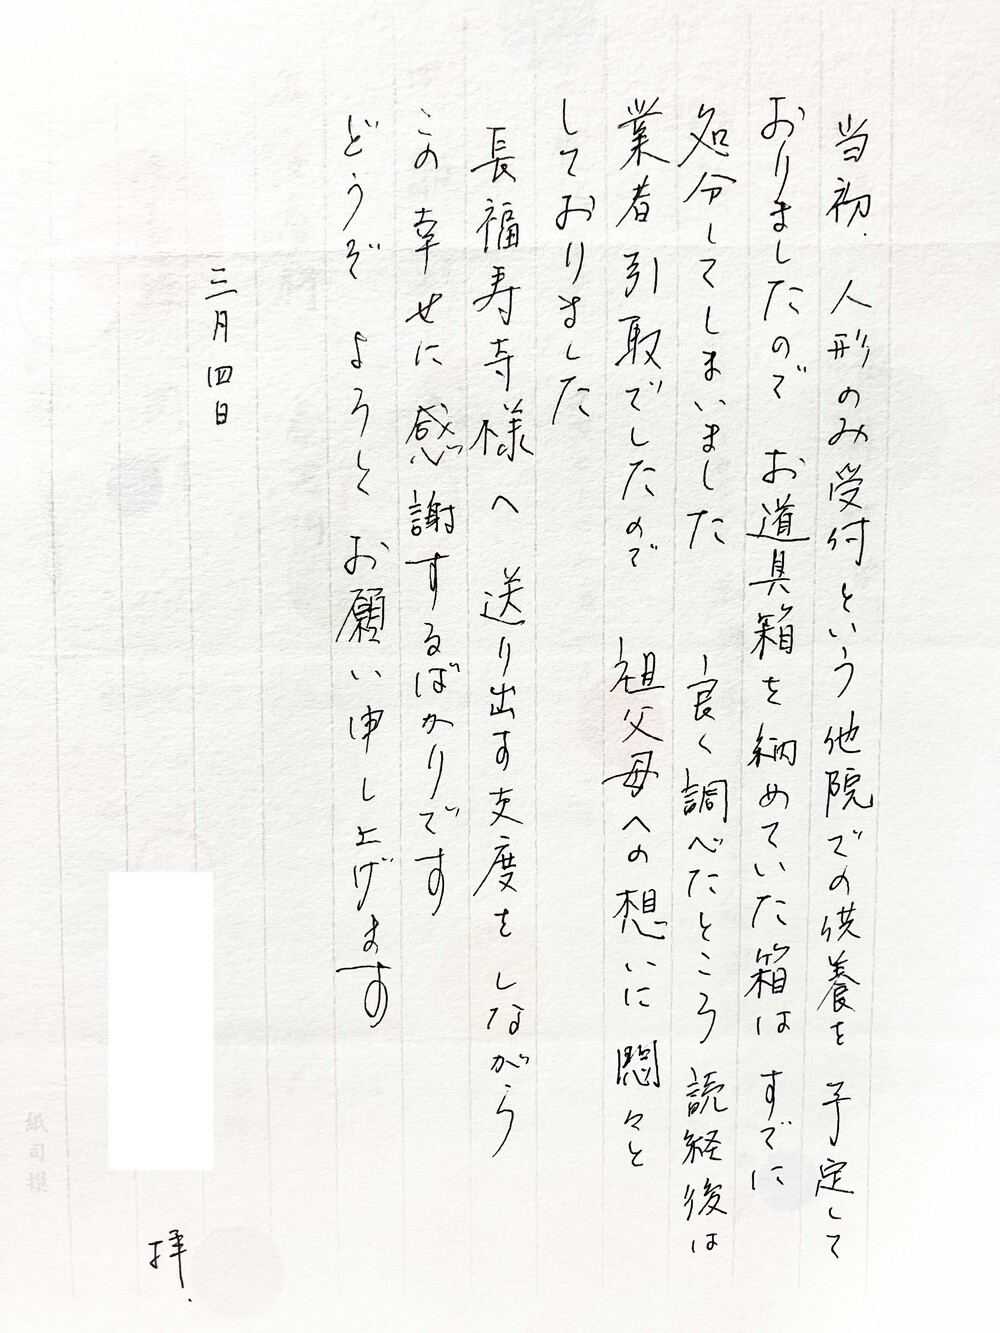 当初、人形のみ受付という他院での供養を予定して
おりましたので お道具箱を納めていた箱は すでに
処分してしまいました 良く調べたところ 読経後は
業者引取でしたので 祖父母への想いに 悶々と
しておりました
長福寿寺様へ 送り出す支度を しながら
この幸せに感謝するばかりです
どうぞ よろしく お願い申し上げます
三月四日
拝.
紙司撰